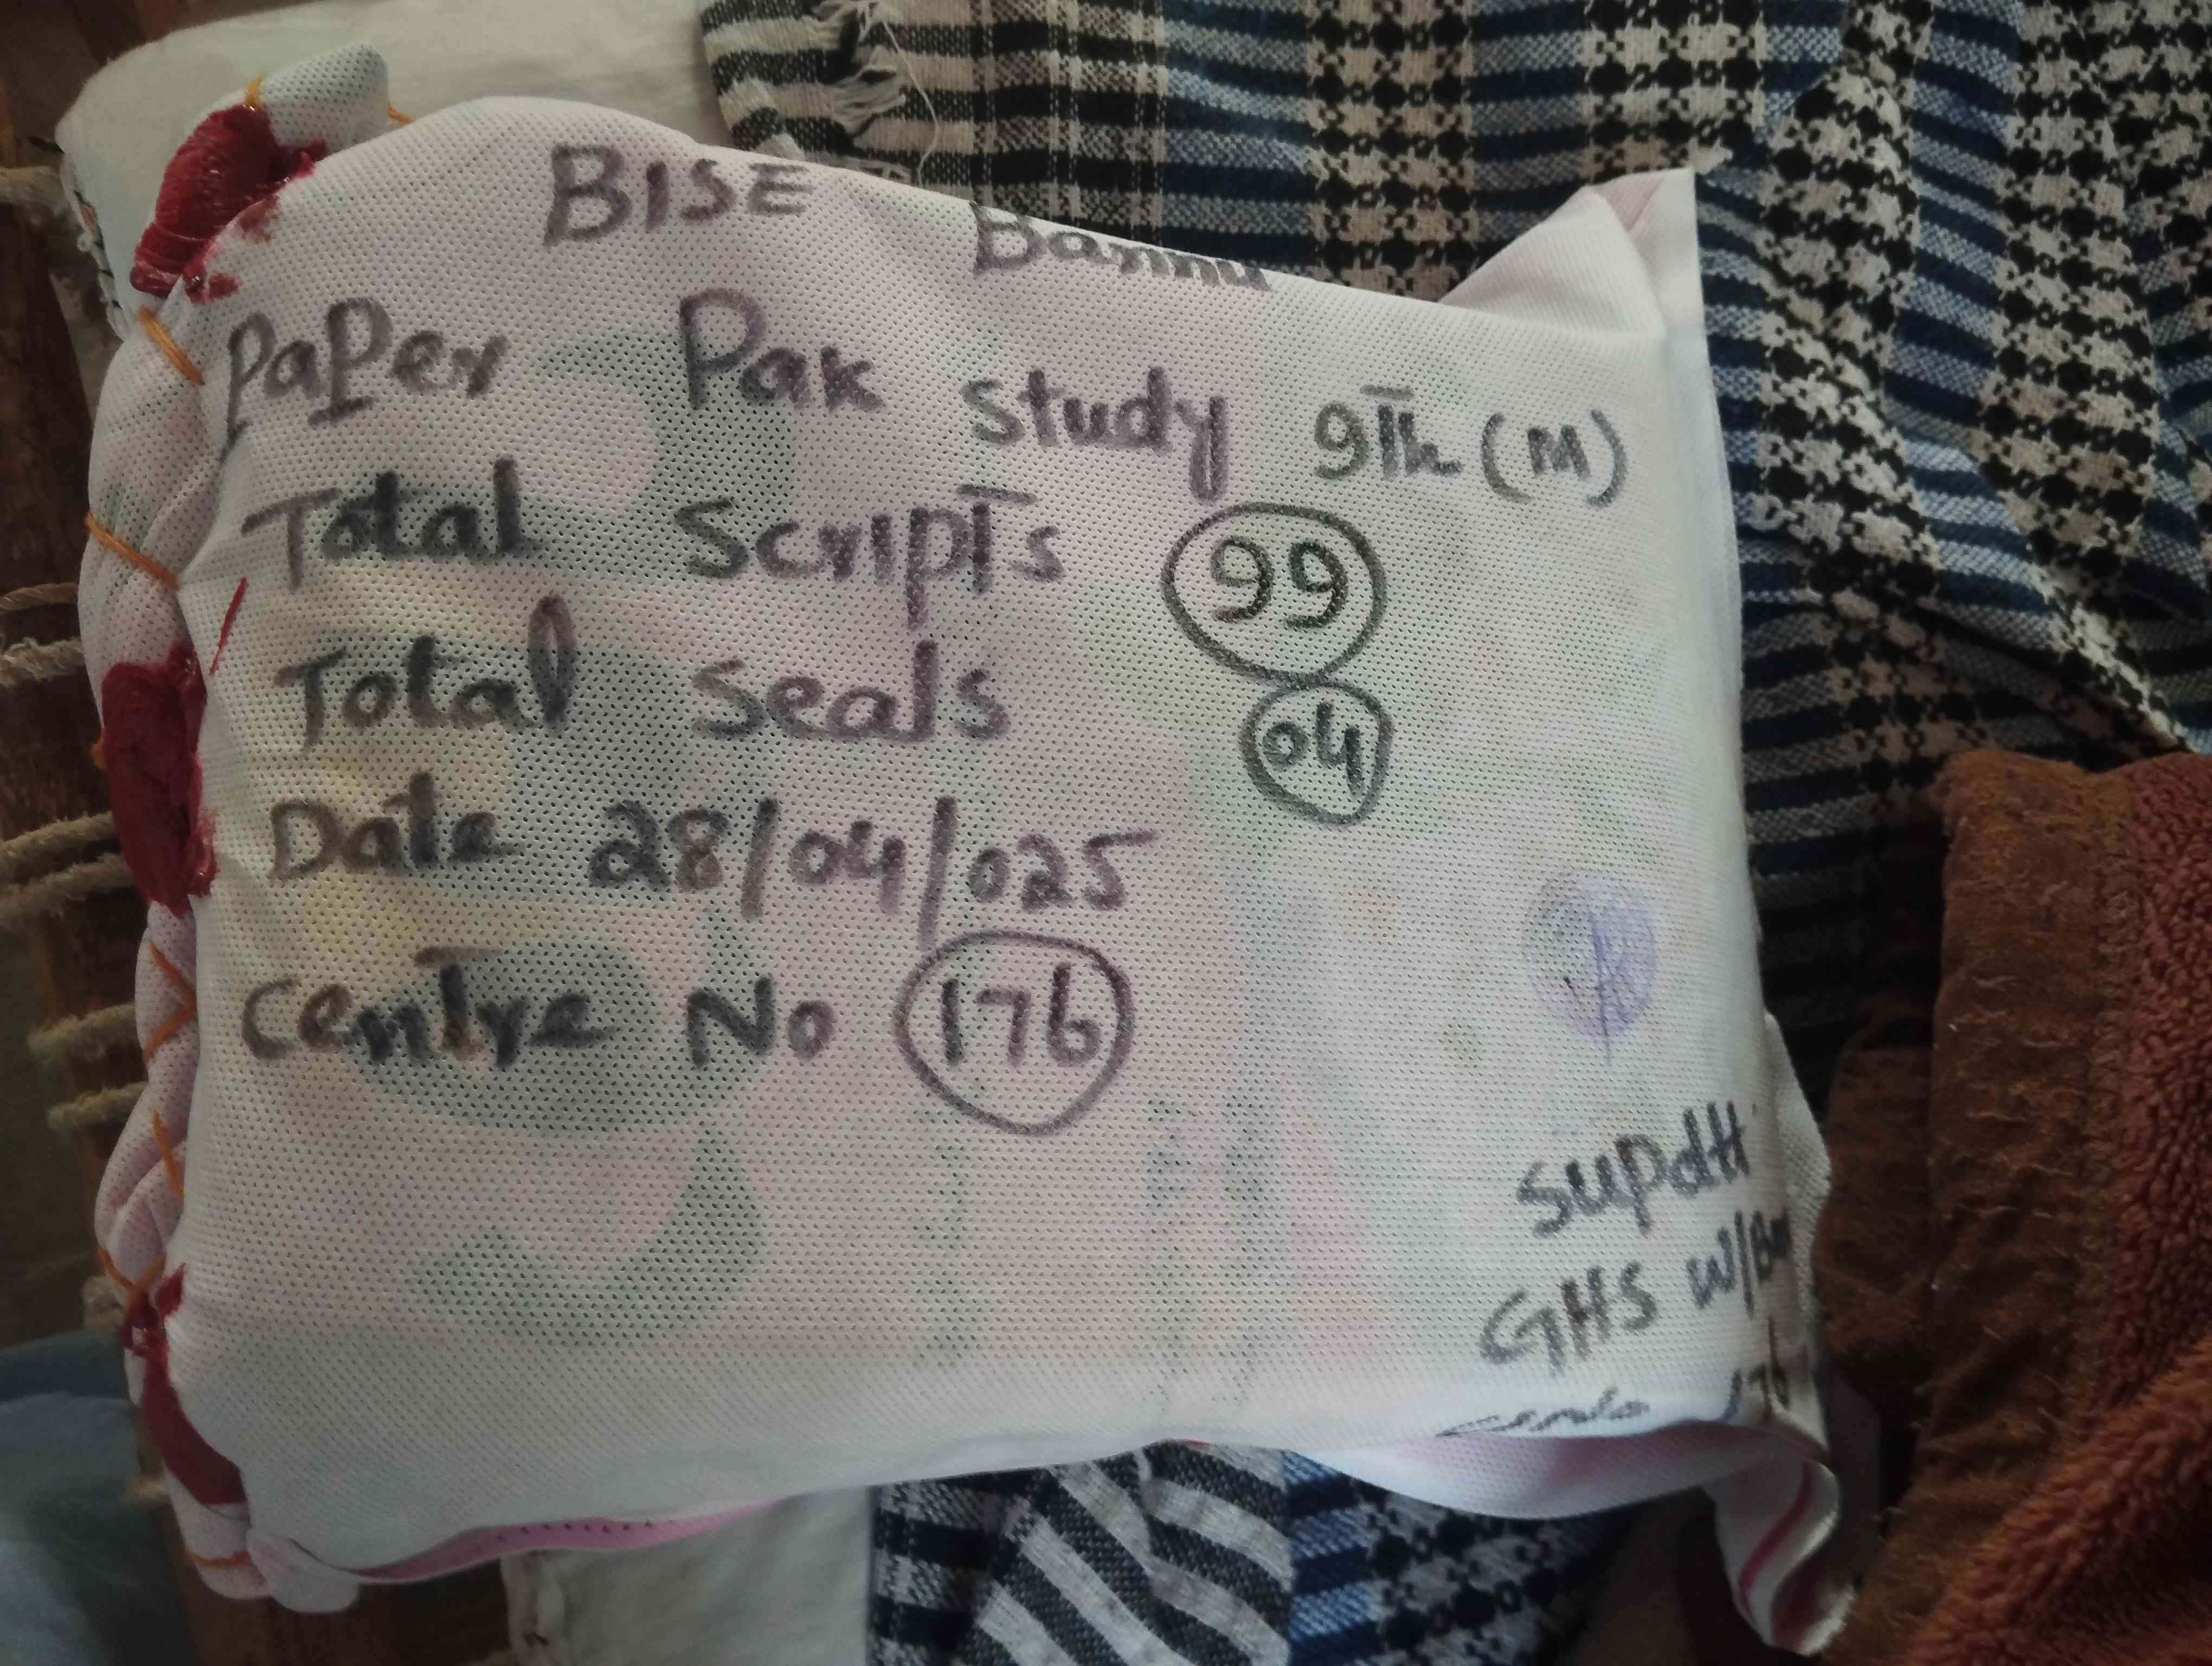 BISE Bannu
Paper Pak Study 9Th (M)
Total Scripts 99
Total Seals 04
Date 28/04/025
Centre No 176
Supdtt
GHS W/
176